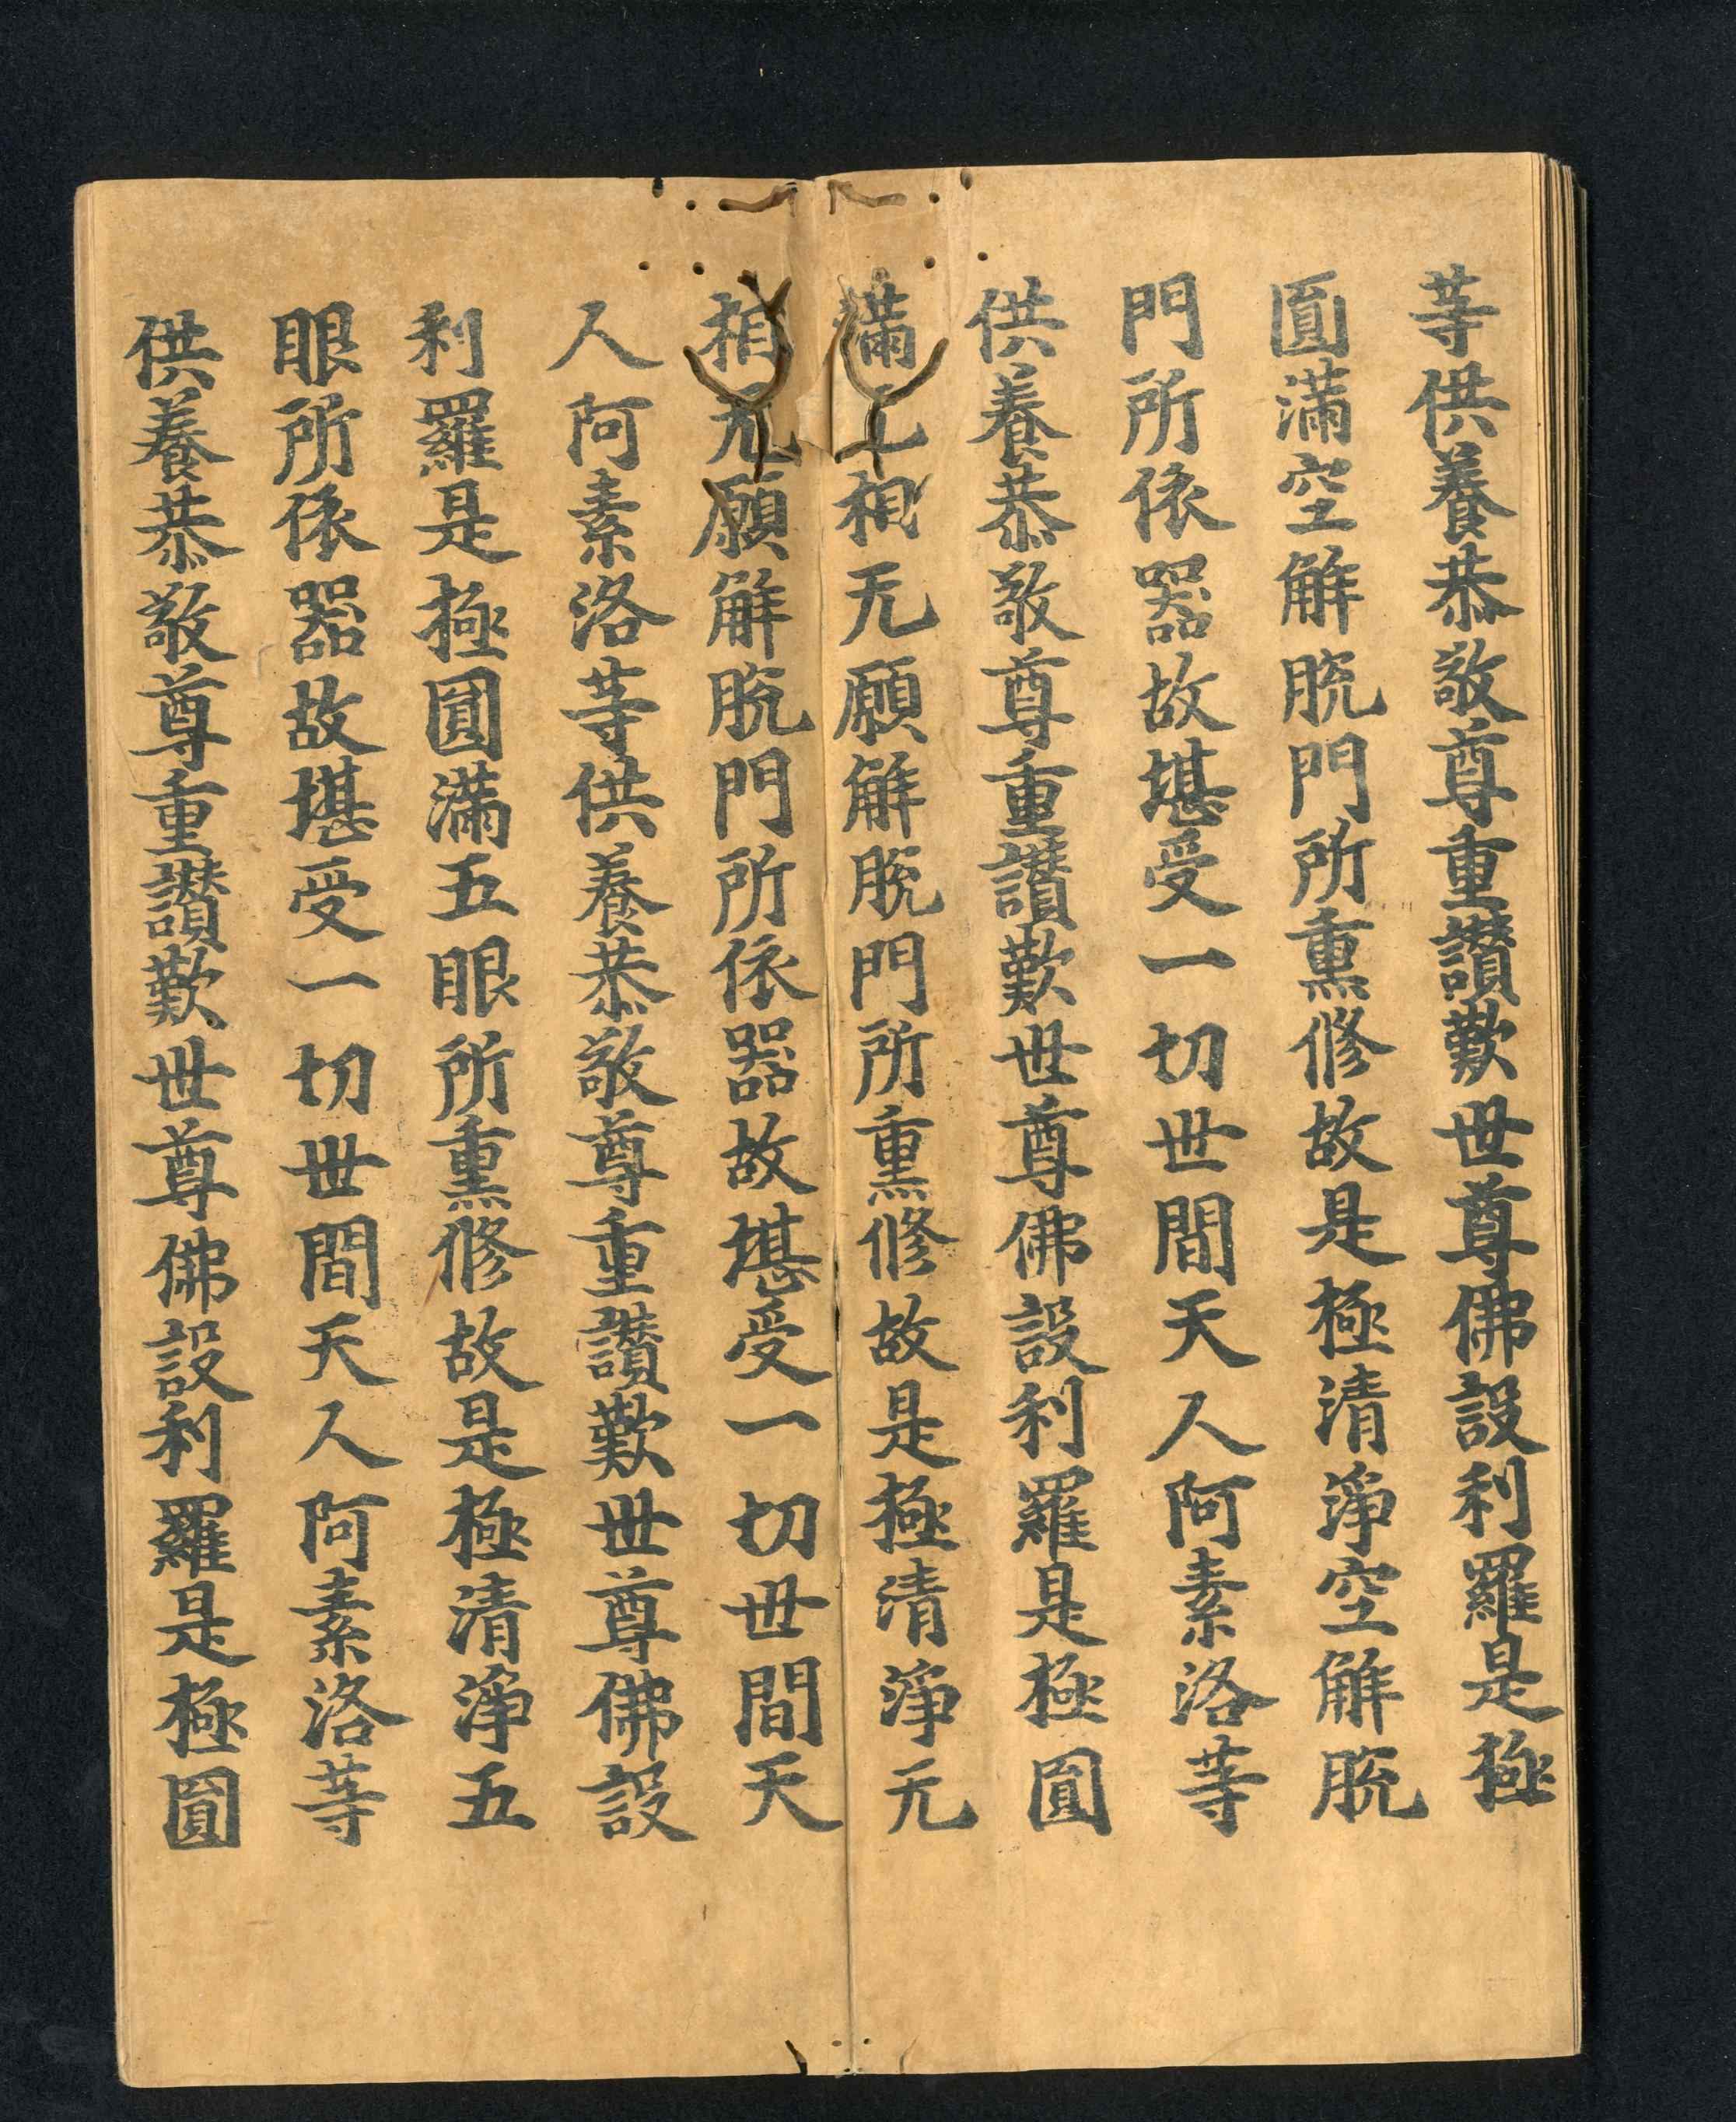 等供養恭敬尊重讚歎世尊佛設利羅是極
圓滿空解脫門所熏修故是極清淨空解脫
門所依器故堪受一切世間天人阿素洛等
供養恭敬尊重讚歎世尊佛設利羅是極圓
滿无相无願解脫門所熏修故是極清淨无
相无願解脫門所依器故堪受一切世間天
人阿素洛等供養恭敬尊重讚歎世尊佛設
利羅是極圓滿五眼所熏修故是極清淨五
眼所依器故堪受一切世間天人阿素洛等
供養恭敬尊重讚歎世尊佛設利羅是極圓